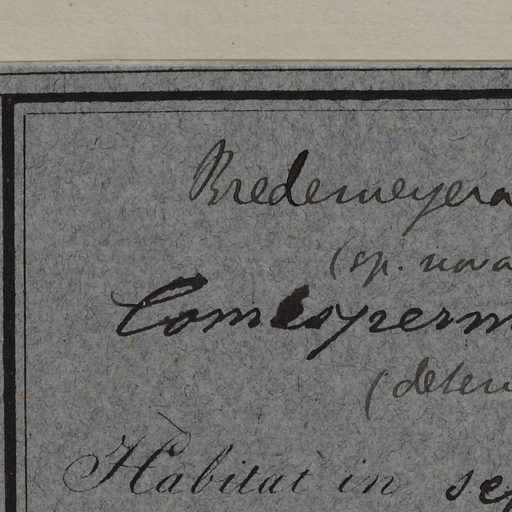 Bredemeyera
(sp. nova
Comesperm
(deter
Habitat in sep